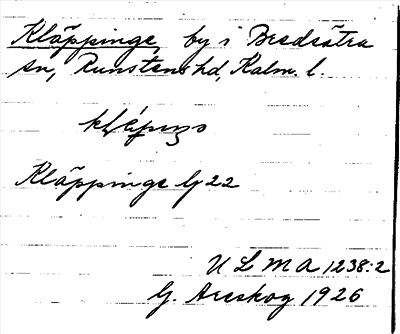 Kläppinge, by i Bredsätra
sn, Runstens hd, Kalm. l.
Kläppinge G 22
U L M A 1238:2
G. Areskog 1926